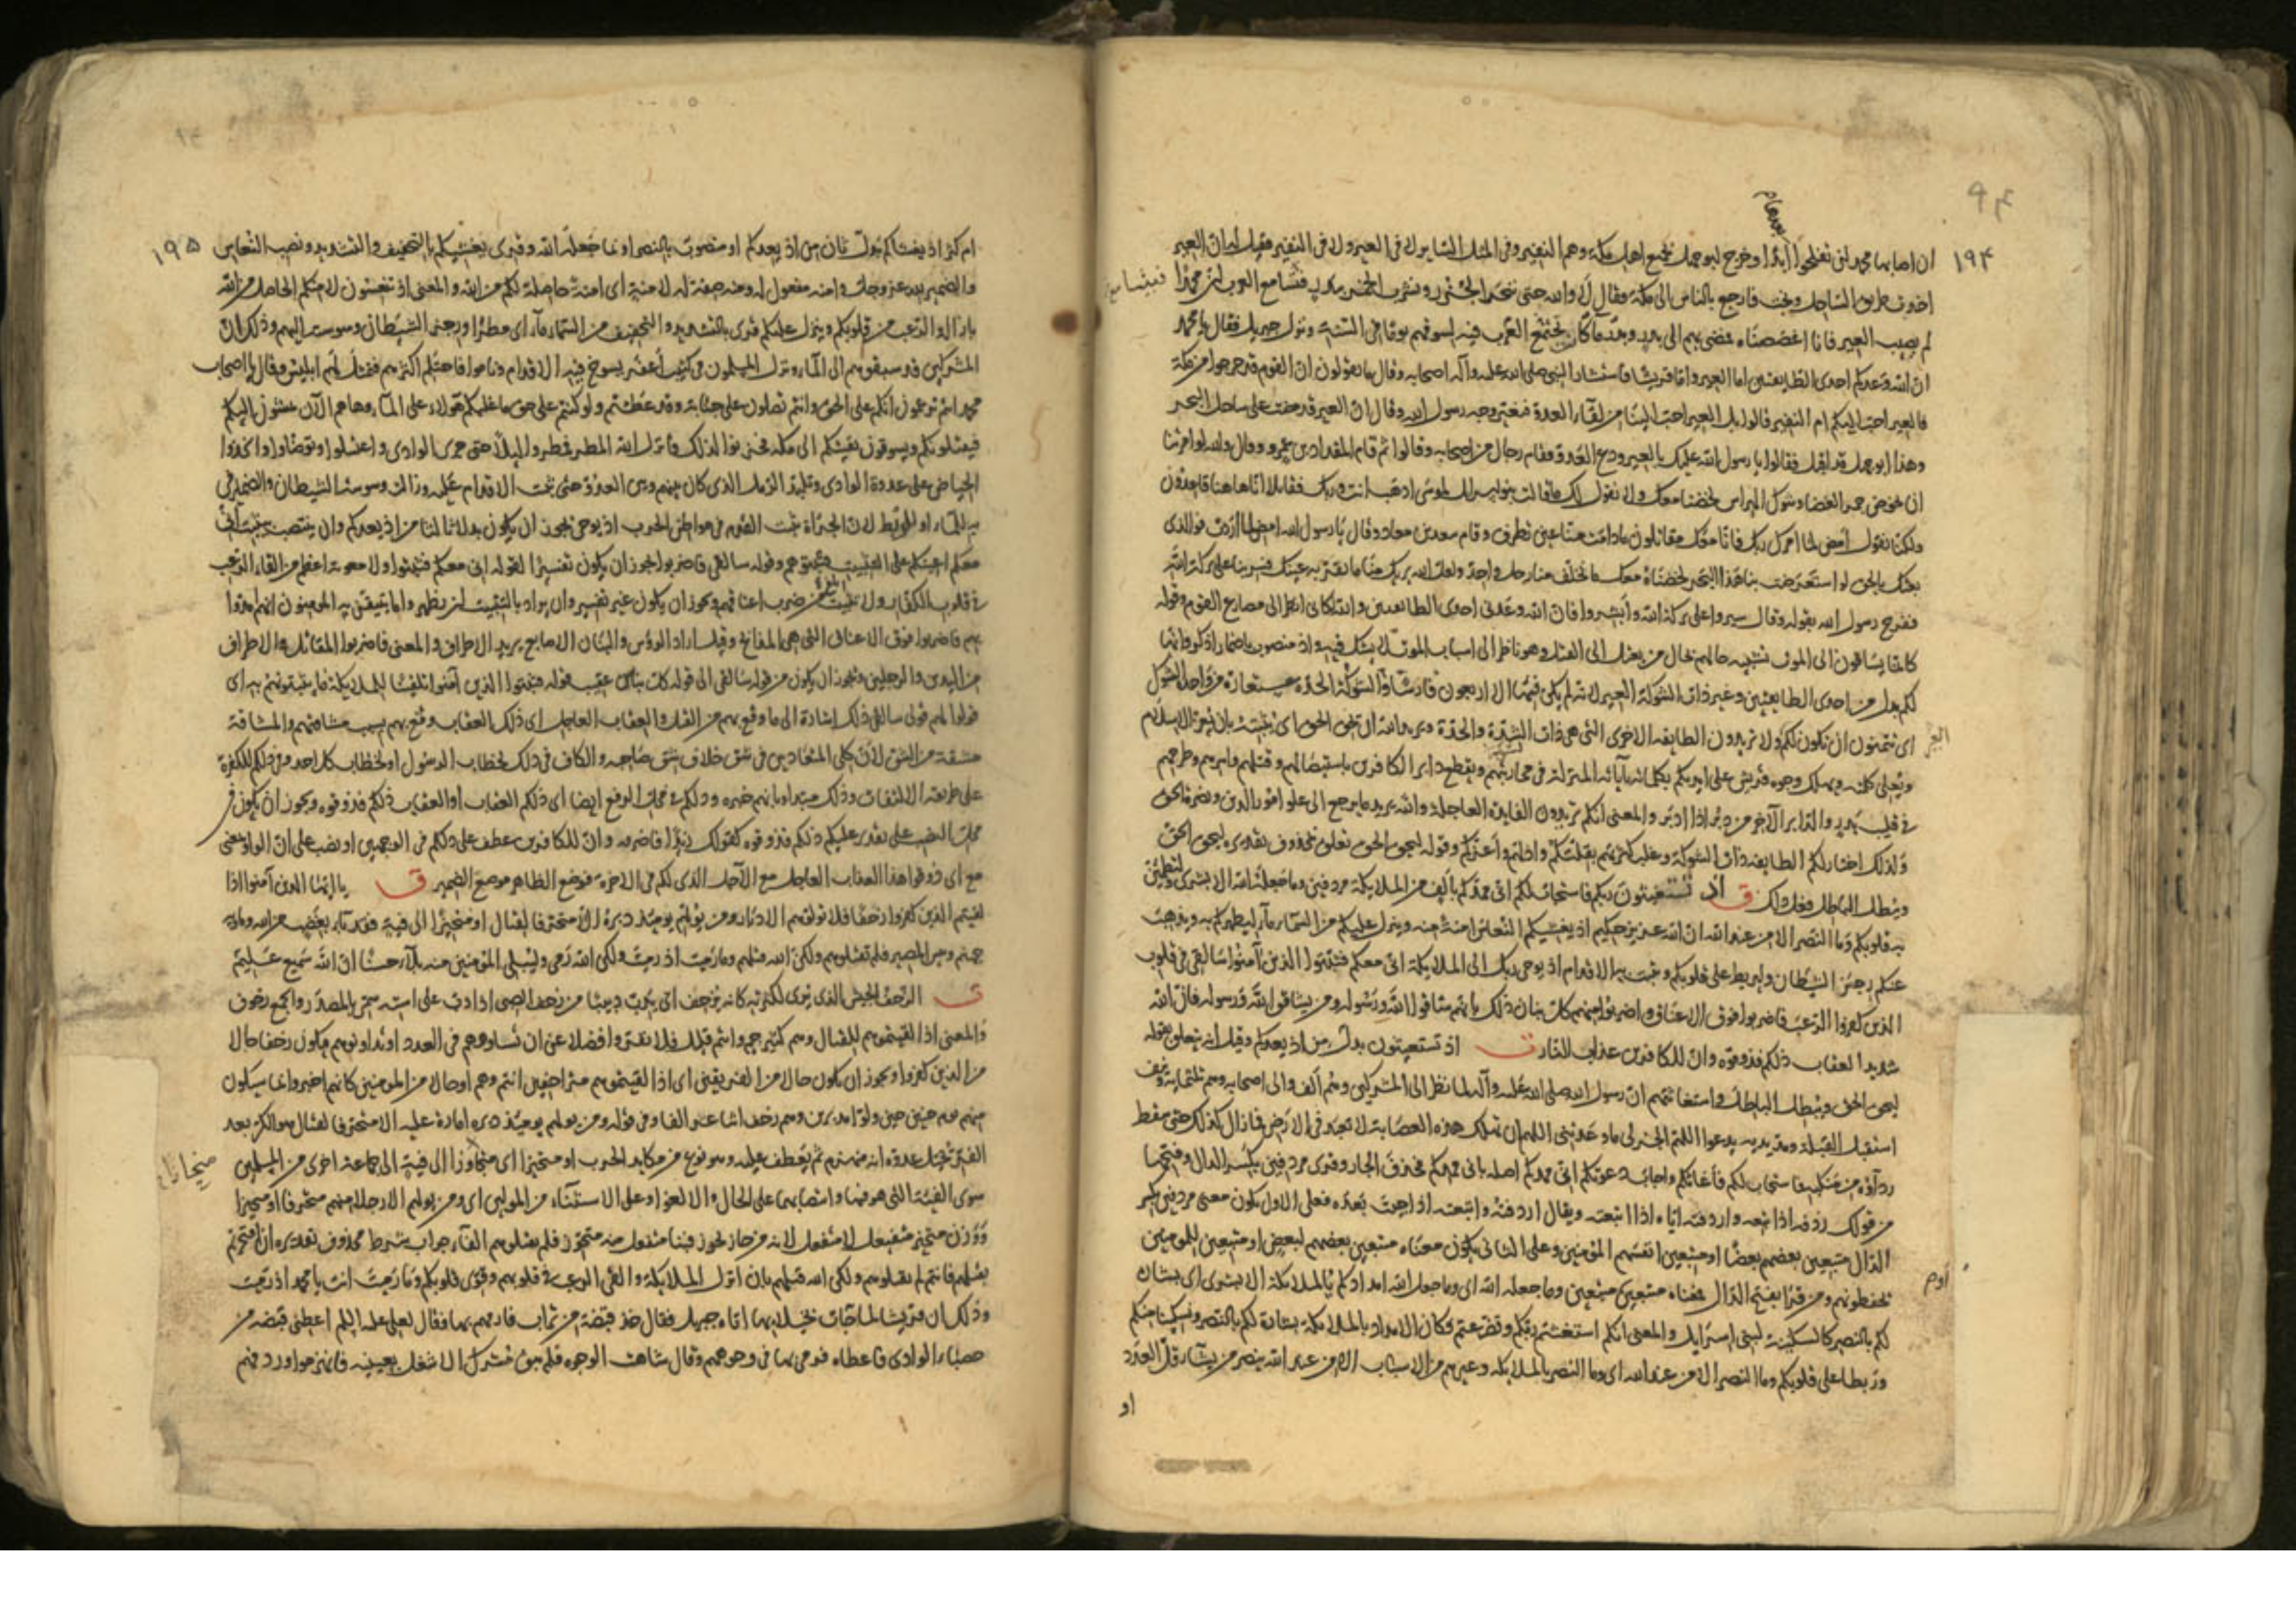 ٩٤
١٩٤
بعدها م
ان اصابها محمد لن تفلحوا ابدا وخرج ابو جهل بجميع اهل مكة وهم النفير وفى المثل السائر لا فى العير ولا فى النفير فقيل له ان العير
اخذت طريق الساحل ونجت فارجع بالناس الى مكة وقال لا والله حتى ننحر الجزور ونشرب الخمر ببدر فتسامع العرب بان محمدا
فيتسامع
لم يصب العير فانا اعضضناه فمضى بهم الى بدر وبدر ماء كان يجتمع العرب فيه لسوقهم يوما فى السنة ونزل جبريل فقال يا محمد
ان الله وعدكم احدى الطايفتين اما العير واما قريشا فاستشار النبى صلى الله عليه وآله اصحابه وقال ما تقولون ان القوم قد خرجوا من مكة
فالعير احب اليكم ام النفير قالوا بل العير احب الينا من لقاء العدو فتغير وجه رسول الله وقال ان العير قد مضت على ساحل البحر
وهذا ابو جهل قد اقبل فقالوا يا رسول الله عليك بالعير ودع العدو فقام رجال من اصحابه وقالوا ثم قام المقداد بن عمرو وقال والله لو امرتنا
ان نخوض جمر الغضا وشوك الهراس لخضنا معك ولا نقول لك ما قالت بنو اسرائيل لموسى اذهب انت وربك فقاتلا انا هاهنا قاعدون
ولكنا نقول امض لما امرك ربك فانا معك مقاتلون مادامت منا عين تطرف وقام سعد بن معاذ وقال يا رسول الله امض لما اردت فوالذى
بعثك بالحق لو استعرضت بنا هذا البحر لخضناه معك ما تخلف منا رجل واحد ولعل الله يريك منا ما تقر به عينك فسر بنا على بركة الله
ففرح رسول الله بقوله وقال سيروا على بركة الله وابشروا فان الله وعدنى احدى الطايفتين والله لكانى انظر الى مصارع القوم وقوله
كانما يساقون الى الموت تشبيه حالهم بحال من يعتل الى القتل وهو ناظر الى اسباب الموت لا يشك فيه واذ منصوب باضمار اذكر وانها
لكم بدل من احدى الطايفتين وغير ذات الشوكة العير لانه لم يكن فيها الا اربعون فارسا والشوكة الحدة مستعارة من واحد الشوك
اى تتمنون ان تكون لكم ولا تريدون الطايفة الاخرى التى هى ذات الشدة والحدة ويريد الله ان يحق الحق اى يثبته بان يعز الاسلام
العير
ويعلى كلمته ويهلك وجوه قريش على ايديكم بكلماته بآياته المنزلة فى محاربتهم ويقطع دابر الكافرين باستيصالهم وقتلهم واسرهم وطرحهم
فى قليب بدر والدابر الآخر من دبر اذا ادبر والمعنى انكم تريدون الفايدة العاجلة والله يريد ما يرجع الى علو امور الدين ونصرة الحق
ولذلك اختار لكم الطايفة ذات الشوكة وغلب كثرتهم بقلتكم واذلهم واعزكم وقوله ليحق الحق تعلق بمحذوف تقديره ليحق الحق
ويبطل الباطل فعل ذلك ق اذ تستغيثون ربكم فاستجاب لكم انى ممدكم بالف من الملايكة مردفين وما جعله الله الا بشرى ولتطمئن
به قلوبكم وما النصر الا من عند الله ان الله عزيز حكيم اذ يغشيكم النعاس امنة منه وينزل عليكم من السماء ماء ليطهركم به ويذهب
عنكم رجز الشيطان وليربط على قلوبكم ويثبت به الاقدام اذ يوحى ربك الى الملايكة انى معكم فثبتوا الذين آمنوا سالقى فى قلوب
الذين كفروا الرعب فاضربوا فوق الاعناق واضربوا منهم كل بنان ذلك بانهم شاقوا الله ورسوله ومن يشاقق الله ورسوله فان الله
شديد العقاب ذلكم فذوقوه وان للكافرين عذاب النار ت اذ تستغيثون بدل من اذ يعدكم وقيل انه يتعلق بقوله
ليحق الحق ويبطل الباطل واستغاثتهم ان رسول الله صلى الله عليه وآله لما نظر الى المشركين وهم الف والى اصحابه وهم ثلثماية ونيف
استقبل القبلة ومد يديه يدعوا اللهم انجز لى ما وعدتنى اللهم ان تهلك هذه العصابة لا تعبد فى الارض فما زال كذلك حتى سقط
رداؤه من منكبيه فاستجاب لكم فاغاثكم واجاب دعوتكم انى ممدكم اصله بانى ممدكم فحذف الجار وقرى مردفين بكسر الدال وفتحها
من قولك ردفه اذا تبعه واردفته اياه اذا اتبعته ويقال اردفته واتبعته اذا جئت بعده فعلى الاول يكون معنى مردفين بكسر
الدال متبعين بعضهم بعضا او متبعين انفسهم المؤمنين وعلى الثانى يكون معناه متبعين بعضهم لبعض او متبعين للمومنين
يحفظونهم ومن قرا بفتح الدال فمعناه متبعين متبعين وما جعله الله اى وما جعل الله امدادكم بالملايكة الا بشرى اى بشارة
اوم
لكم بالنصر كالسكينة لبنى اسرايل والمعنى انكم استغثتم ربكم وتضرعتم فكان الامداد بالملايكة بشارة لكم بالنصر وتسكينا منكم
وربطا على قلوبكم وما النصر الا من عند الله اى وما النصر بالملايكة وغيرهم من الاسباب الا من عند الله ينصر من يشاء قل العدد
او
١٩٥
ام كثر اذ يغشاكم بدل ثان من اذ يعدكم او منصوب بالنصر او بما جعله الله وقرى يغشيكم بالتخفيف والتشديد ونصب النعاس
والضمير لله عز وجل وامنة مفعول له ومنه صفة له لامنة اى امنة حاصلة لكم من الله والمعنى اذ تنعسون لامنكم الحاصل من الله
بازالة الرعب من قلوبكم وينزل عليكم قرى بالتشديد والتخفيف من السماء ماء اى مطرا ورجز الشيطان وسوسته اليهم وذلك ان
المشركين قد سبقوهم الى الماء ونزل المسلمون فى كثيب اعفر يسوخ فيه الاقدام وناموا فاحتلم اكثرهم فتمثل لهم ابليس وقال يا اصحاب
محمد انتم تزعمون انكم على الحق وانتم تصلون على جنابة وقد عطشتم ولو كنتم على حق ما غلبكم هؤلاء على الماء وها هم الآن يمشون اليكم
فيقتلونكم ويسوقون بقيتكم الى مكة فحزنوا لذلك فانزل الله المطر فمطروا ليلا حتى جرى الوادى واغتسلوا وتوضاوا واتخذوا
الحياض على عدوة الوادى وتلبد الرمل الذى كان بينهم وبين العدو حتى ثبت الاقدام عليه وزالت وسوسة الشيطان والضمير فى
به للماء او للربط لان الجراة تثبت القدم فى مواطن الحرب اذ يوحى يجوز ان يكون بدلا ثالثا من اذ يعدكم وان ينتصب بيثبت انى
معكم اعينكم على التثبيت فثبتوهم وقوله سالقى فاضربوا يجوز ان يكون تفسيرا لقوله انى معكم فثبتوا ولا معونة اعظم من القاء الرعب
فى قلوب الكفار ولا تثبيت ابلغ من ضرب اعناقهم ويجوز ان يكون غير تفسير وان يراد بالتثبيت ان يظهروا ما يتيقن به المومنون انهم امدوا
بهم فاضربوا فوق الاعناق التى هى المذابح وقيل اراد الرؤس والبنان الاصابع يريد الاطراف والمعنى فاضربوا المقاتل والاطراف
من اليدين والرجلين ويجوز ان يكون من قوله سالقى الى قوله كل بنان عقيب قوله فثبتوا الذين آمنوا تلقينا للملايكة ما يثبتونهم به اى
قولوا لهم قولى سالقى ذلك اشارة الى ما وقع بهم من القتل والعقاب العاجل اى ذلك العقاب وقع بهم بسبب مشاقتهم والمشاقة
مشتقة من الشق لان كلى المتعاديين فى شق خلاف شق صاحبه والكاف فى ذلك لخطاب الرسول او لخطاب كل احد وفى ذلكم للكفرة
على طريقة الالتفات وذلك مبتدا وبانهم خبره وذلكم فى محل الرفع ايضا اى ذلكم العقاب او العقاب ذلكم فذوقوه ويجوز ان يكون فى
محل النصب على تقدير عليكم ذلكم فذوقوه كقولك زيدا فاضربه وان للكافرين عطف على ذلكم فى الوجهين او نصب على ان الواو بمعنى
مع اى ذوقوا هذا العذاب العاجل مع الآجل الذى لكم فى الاخرة فوضع الظاهر موضع الضمير ق يا ايها الذين آمنوا اذا
لقيتم الذين كفروا زحفا فلا تولوهم الادبار ومن يولهم يومئذ دبره الا متحرفا لقتال او متحيزا الى فئة فقد باء بغضب من الله وماواه
جهنم وبئس المصير فلم تقتلوهم ولكن الله قتلهم وما رميت اذ رميت ولكن الله رمى وليبلى المؤمنين منه بلاء حسنا ان الله سميع عليم
ت الزحف الجيش الذى يرى لكثرته كانه يزحف اى يدب دبيبا من زحف الصبى اذا دب على استه سمى بالمصدر والجمع زحوف
والمعنى اذا لقيتموهم للقتال وهم كثير جم وانتم قليل فلا تفروا فضلا عن ان تساووهم فى العدد او تدانوهم فيكون زحفا حال
من الذين كفروا ويجوز ان يكون حالا من الفريقين اى اذا لقيتموهم متزاحفين انتم وهم او حالا من المومنين كانهم اخبروا بما سيكون
منهم يوم حنين حين ولوا مدبرين وهم زحف اثنا عشر الفا وفى قوله ومن يولهم يومئذ دبره امارة عليه الا متحرفا لقتال هو الكر بعد
الفر تخيل عدوه انه منهزم ثم يعطف عليه وهو نوع من مكايد الحرب او متحيزا اى منحازا الى فئة الى جماعة اخرى من المسلمين
منحازا
سوى الفئة التى هو فيها وانتصابهما على الحال والا لغو او على الاستثناء من المولين اى ومن يولهم الا رجلا منهم متحرفا او متحيزا
ووزن متحيز متفيعل لا متفعل لانه من حاز يحوز فبناء متفعل منه متحوز فلم تقتلوهم الفاء جواب شرط محذوف تقديره ان افتخرتم
بقتلهم فانتم لم تقتلوهم ولكن الله قتلهم بان انزل الملايكة والقى الرعب فى قلوبهم وقوى قلوبكم وما رميت انت يا محمد اذ رميت
وذلك ان قريشا لما جاءت بخيلائها اتاه جبريل فقال خذ قبضة من تراب فارمهم بها فقال لعلى عليه السلم اعطنى قبضة من
حصباء الوادى فاعطاه فرمى بها فى وجوههم وقال شاهت الوجوه فلم يبق مشرك الا شغل بعينيه فانهزموا وردفهم